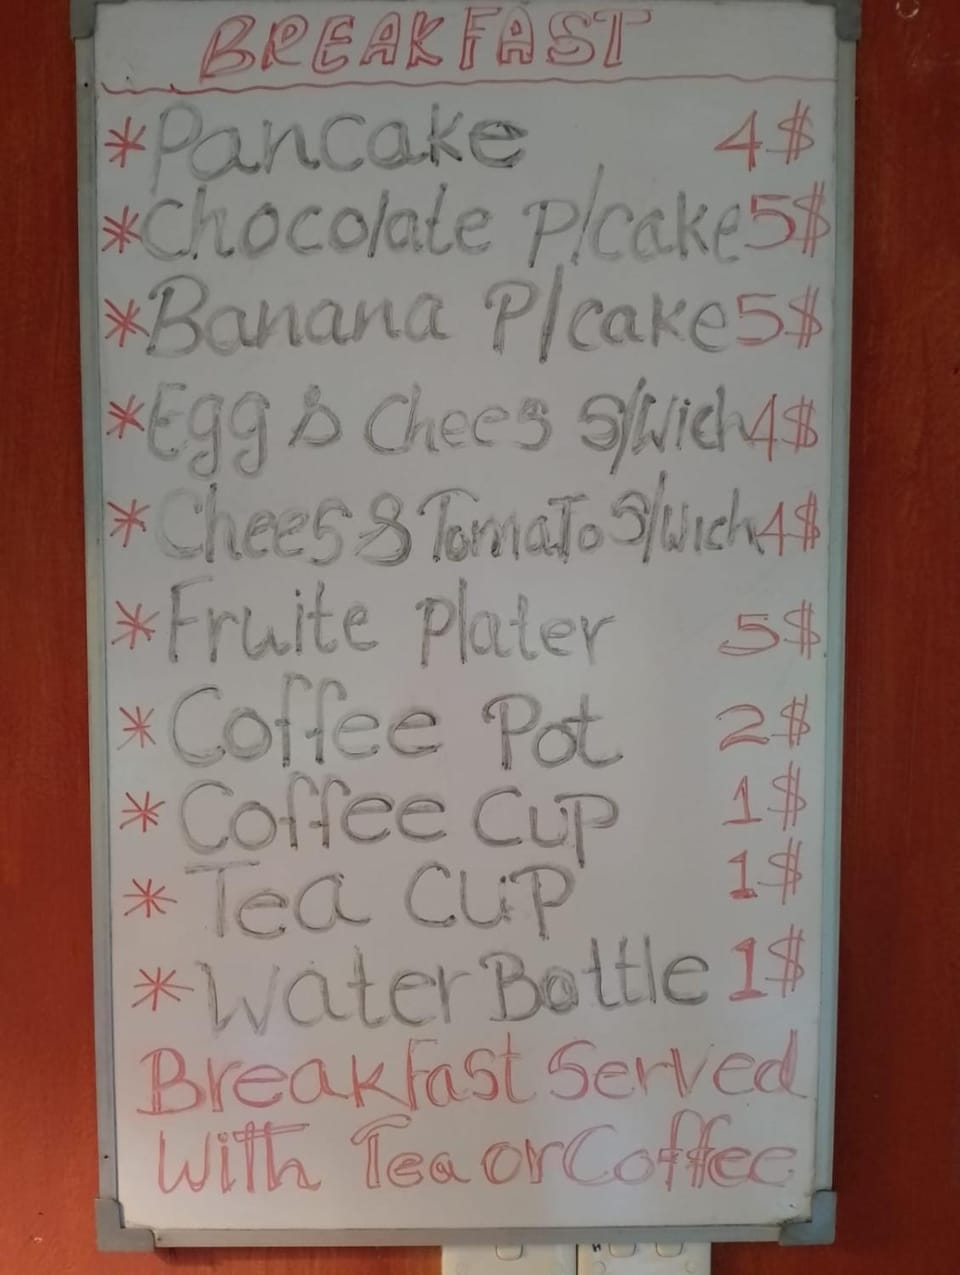 BREAKFAST
*Pancake 4$
*Chocolate P/cake 5$
*Banana P/cake 5$
*Egg & Chees S/Wich 4$
*Chees & Tomato S/wich 4$
*Fruite Plater 5$
*Coffee Pot 2$
*Coffee Cup 1$
*Tea Cup 1$
*Water Bottle 1$
Breakfast Served
With Tea or Coffee